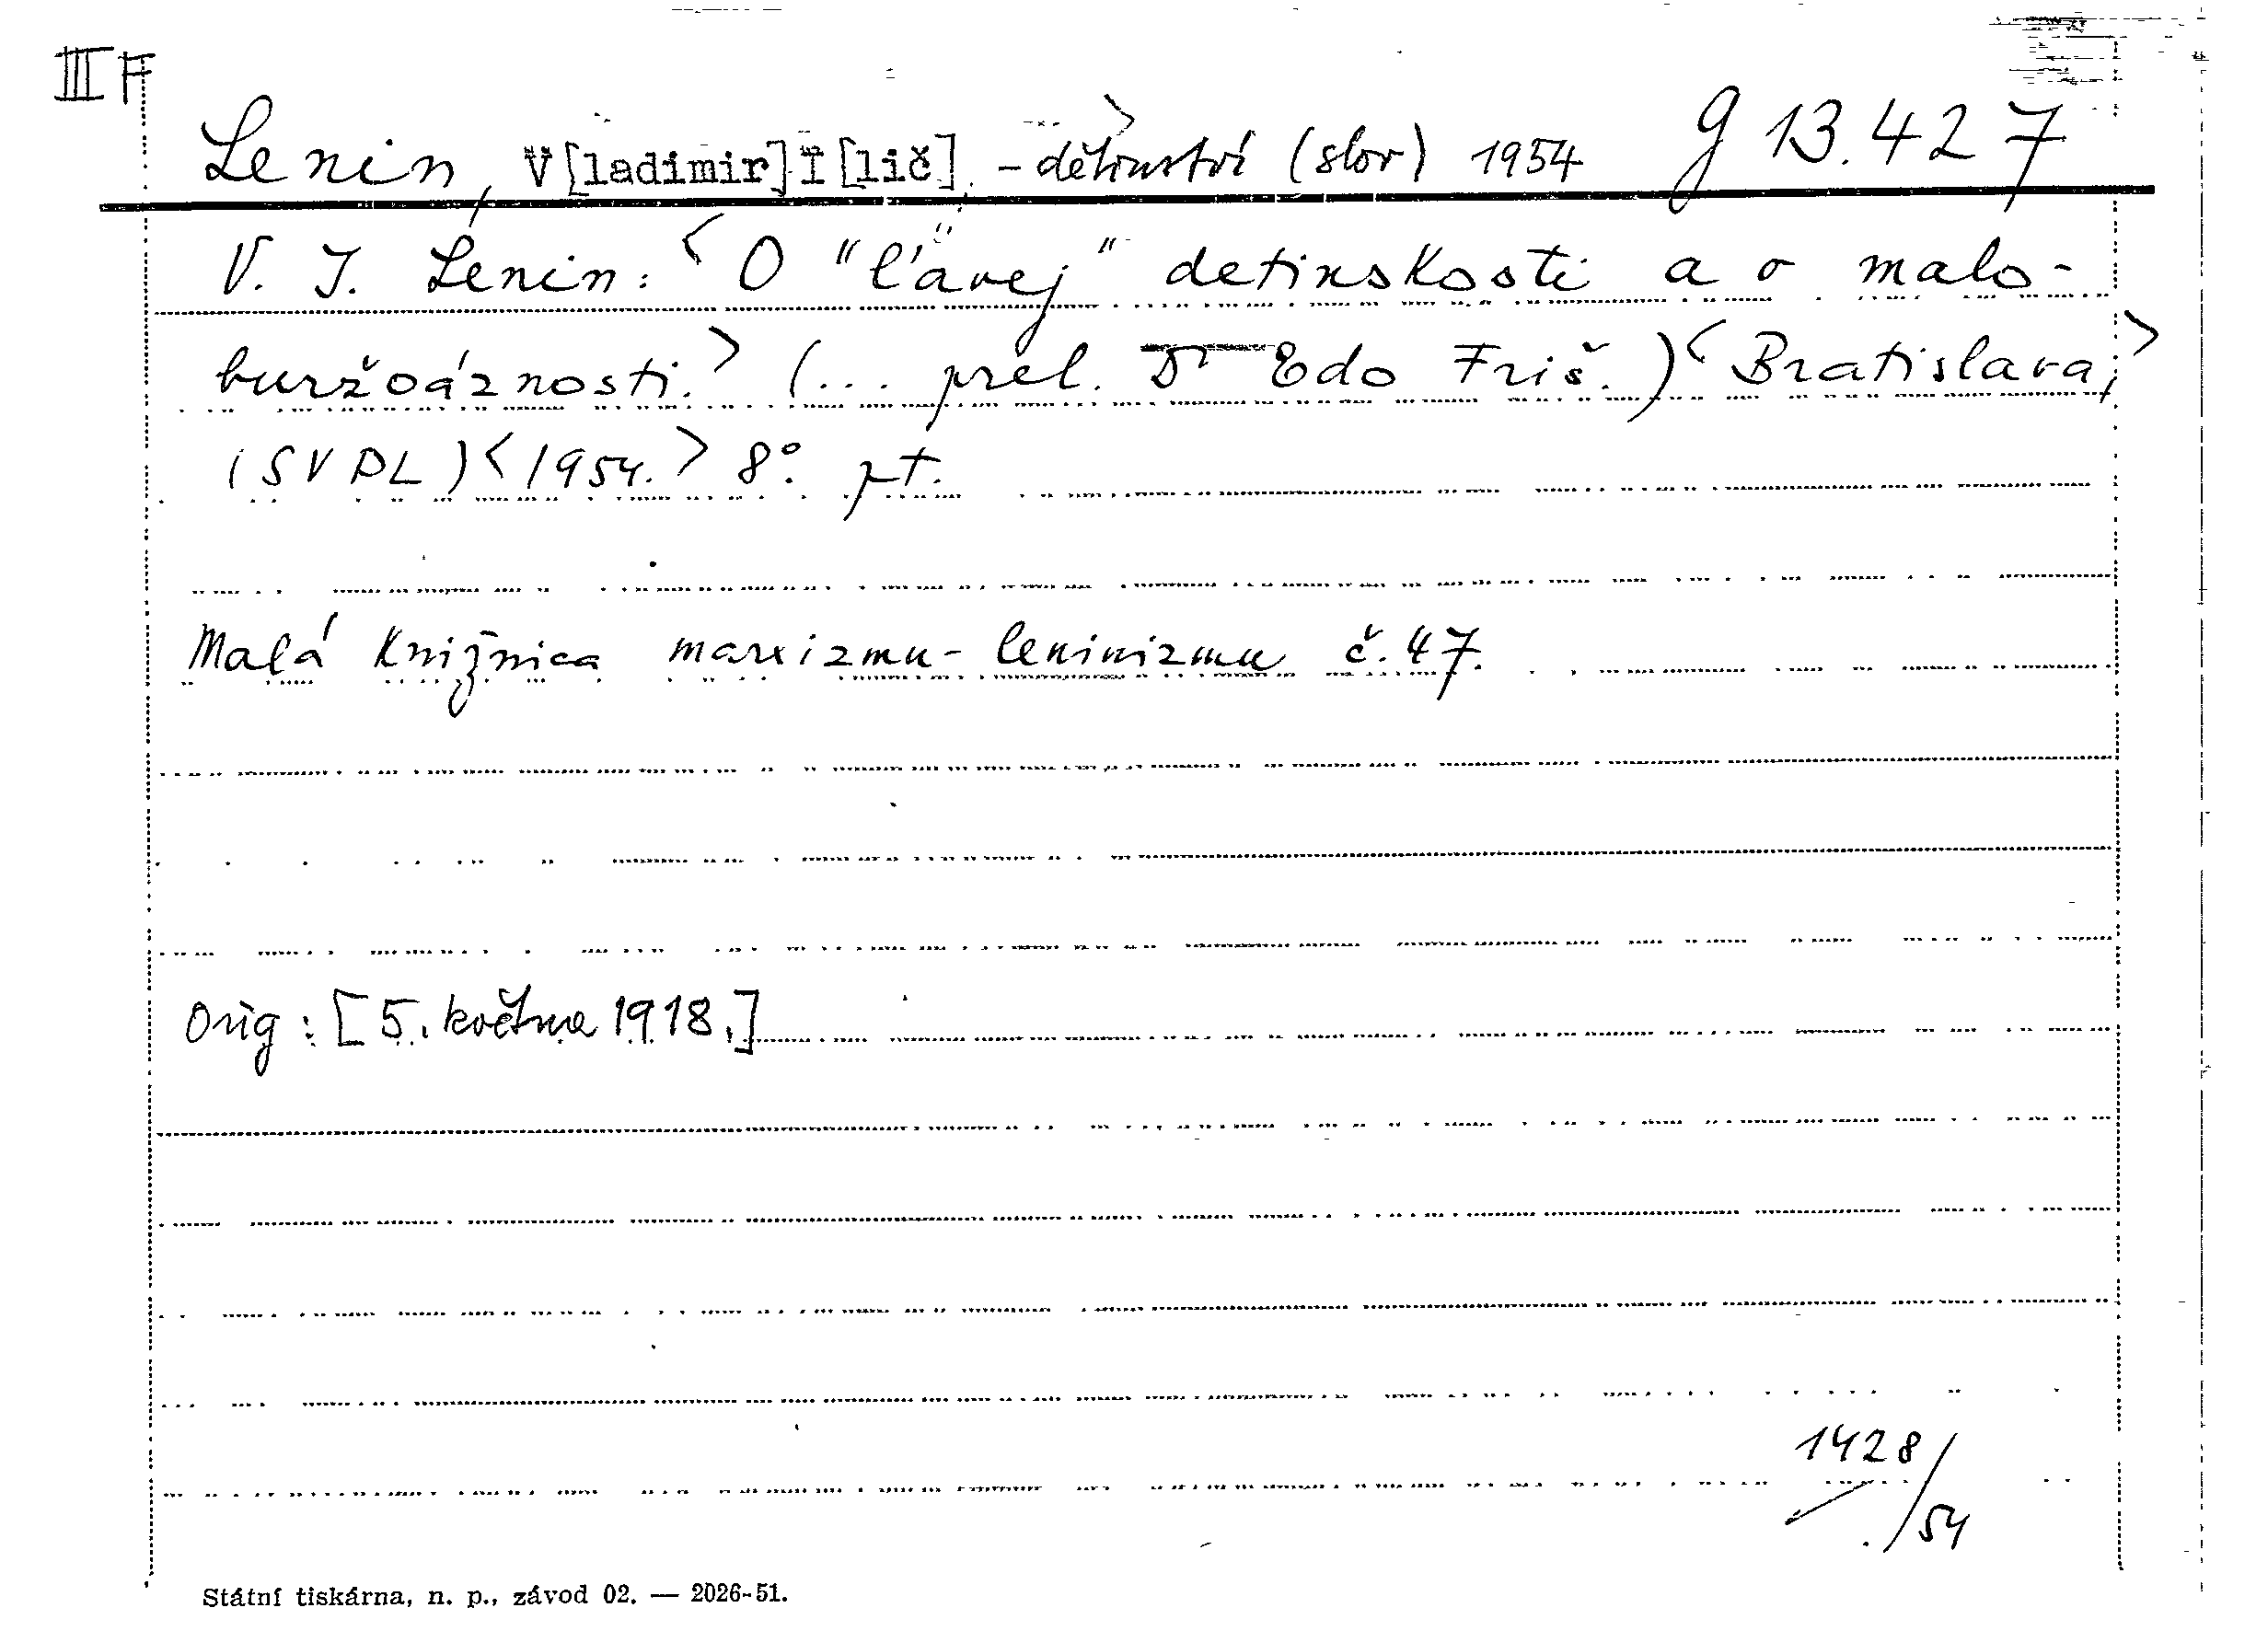 III F
Lenin, V[ladimir] I[lič] - dětinství (slov) 1954 g 13.427
V. I. Lenin: <O "ľavej" detinskosti a o malo-
buržoáznosti.> (... prel. Dr Edo Friš.) <Bratislava,>
(SVPL) <1954.> 8°. pt.
Malá Knižnica marxizmu-leninizmu č. 47.
Orig: [5. května 1918.]
1428/54
Státní tiskárna, n. p., závod 02. — 2026-51.